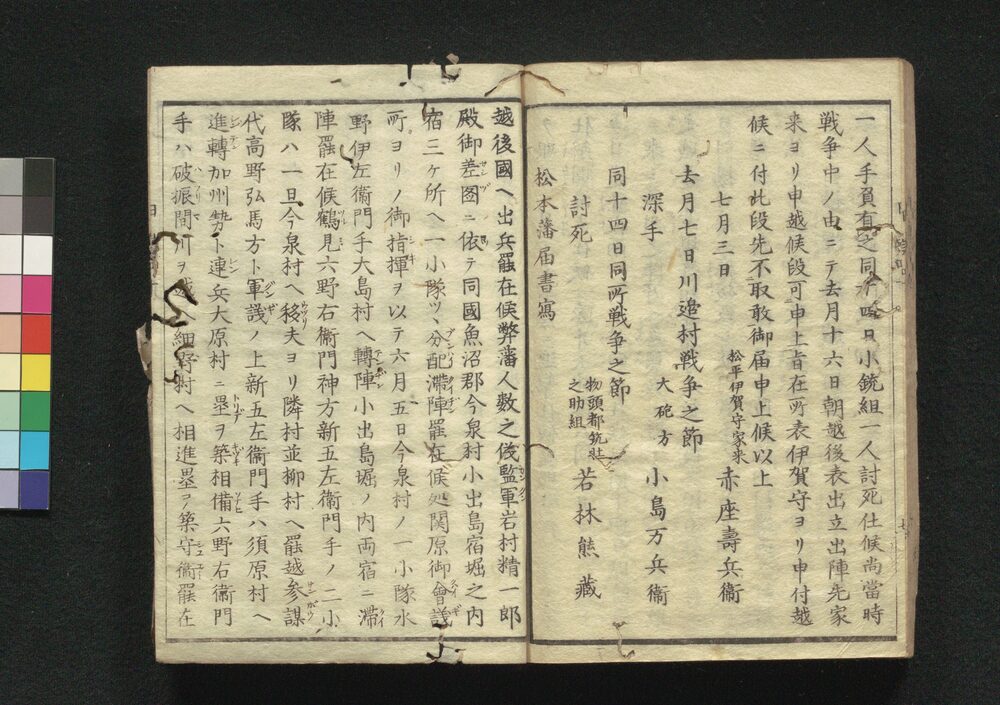 一人手負有之同十四日小銃組一人討死仕候尚當時
戦争中ノ由ニテ去月十六日朝越後表出立出陣先家
来ヨリ申越候段可申上旨在所表伊賀守ヨリ申付越
候ニ付此段先不取敢御届申上候以上
七月三日 松平伊賀守家来 赤座壽兵衞
去月七日川邉村戦争之節
深手 大砲方 小島万兵衞
同十四日同所戦争之節
討死 物頭都筑 之助組 若林熊藏
松本藩届書寫
越後國ヘ出兵罷在候弊藩人数之儀監軍岩村精一郎
殿御差図ニ依テ同國魚沼郡今泉村小出島宿堀之内
宿三ヶ所ヘ一小隊ツヽ分配滞陣罷在候処関原御會議
所ヨリノ御指揮ヲ以テ六月五日今泉村ノ一小隊水
野伊左衞門手大島村ヘ轉陣小出島堀ノ内両宿ニ滞
陣罷在候鶴見六野右衞門神方新五左衞門手ノ二小
隊ハ一旦今泉村ヘ移夫ヨリ隣村並柳村ヘ罷越参謀
代高野弘馬方ト軍議ノ上新五左衞門手ハ須原村ヘ
進轉加州勢ト連兵大原村ニ塁ヲ築相備六野右衞門
手ハ破振間川ヲ ヘ細野村ヘ相進塁ヲ築守衞罷在